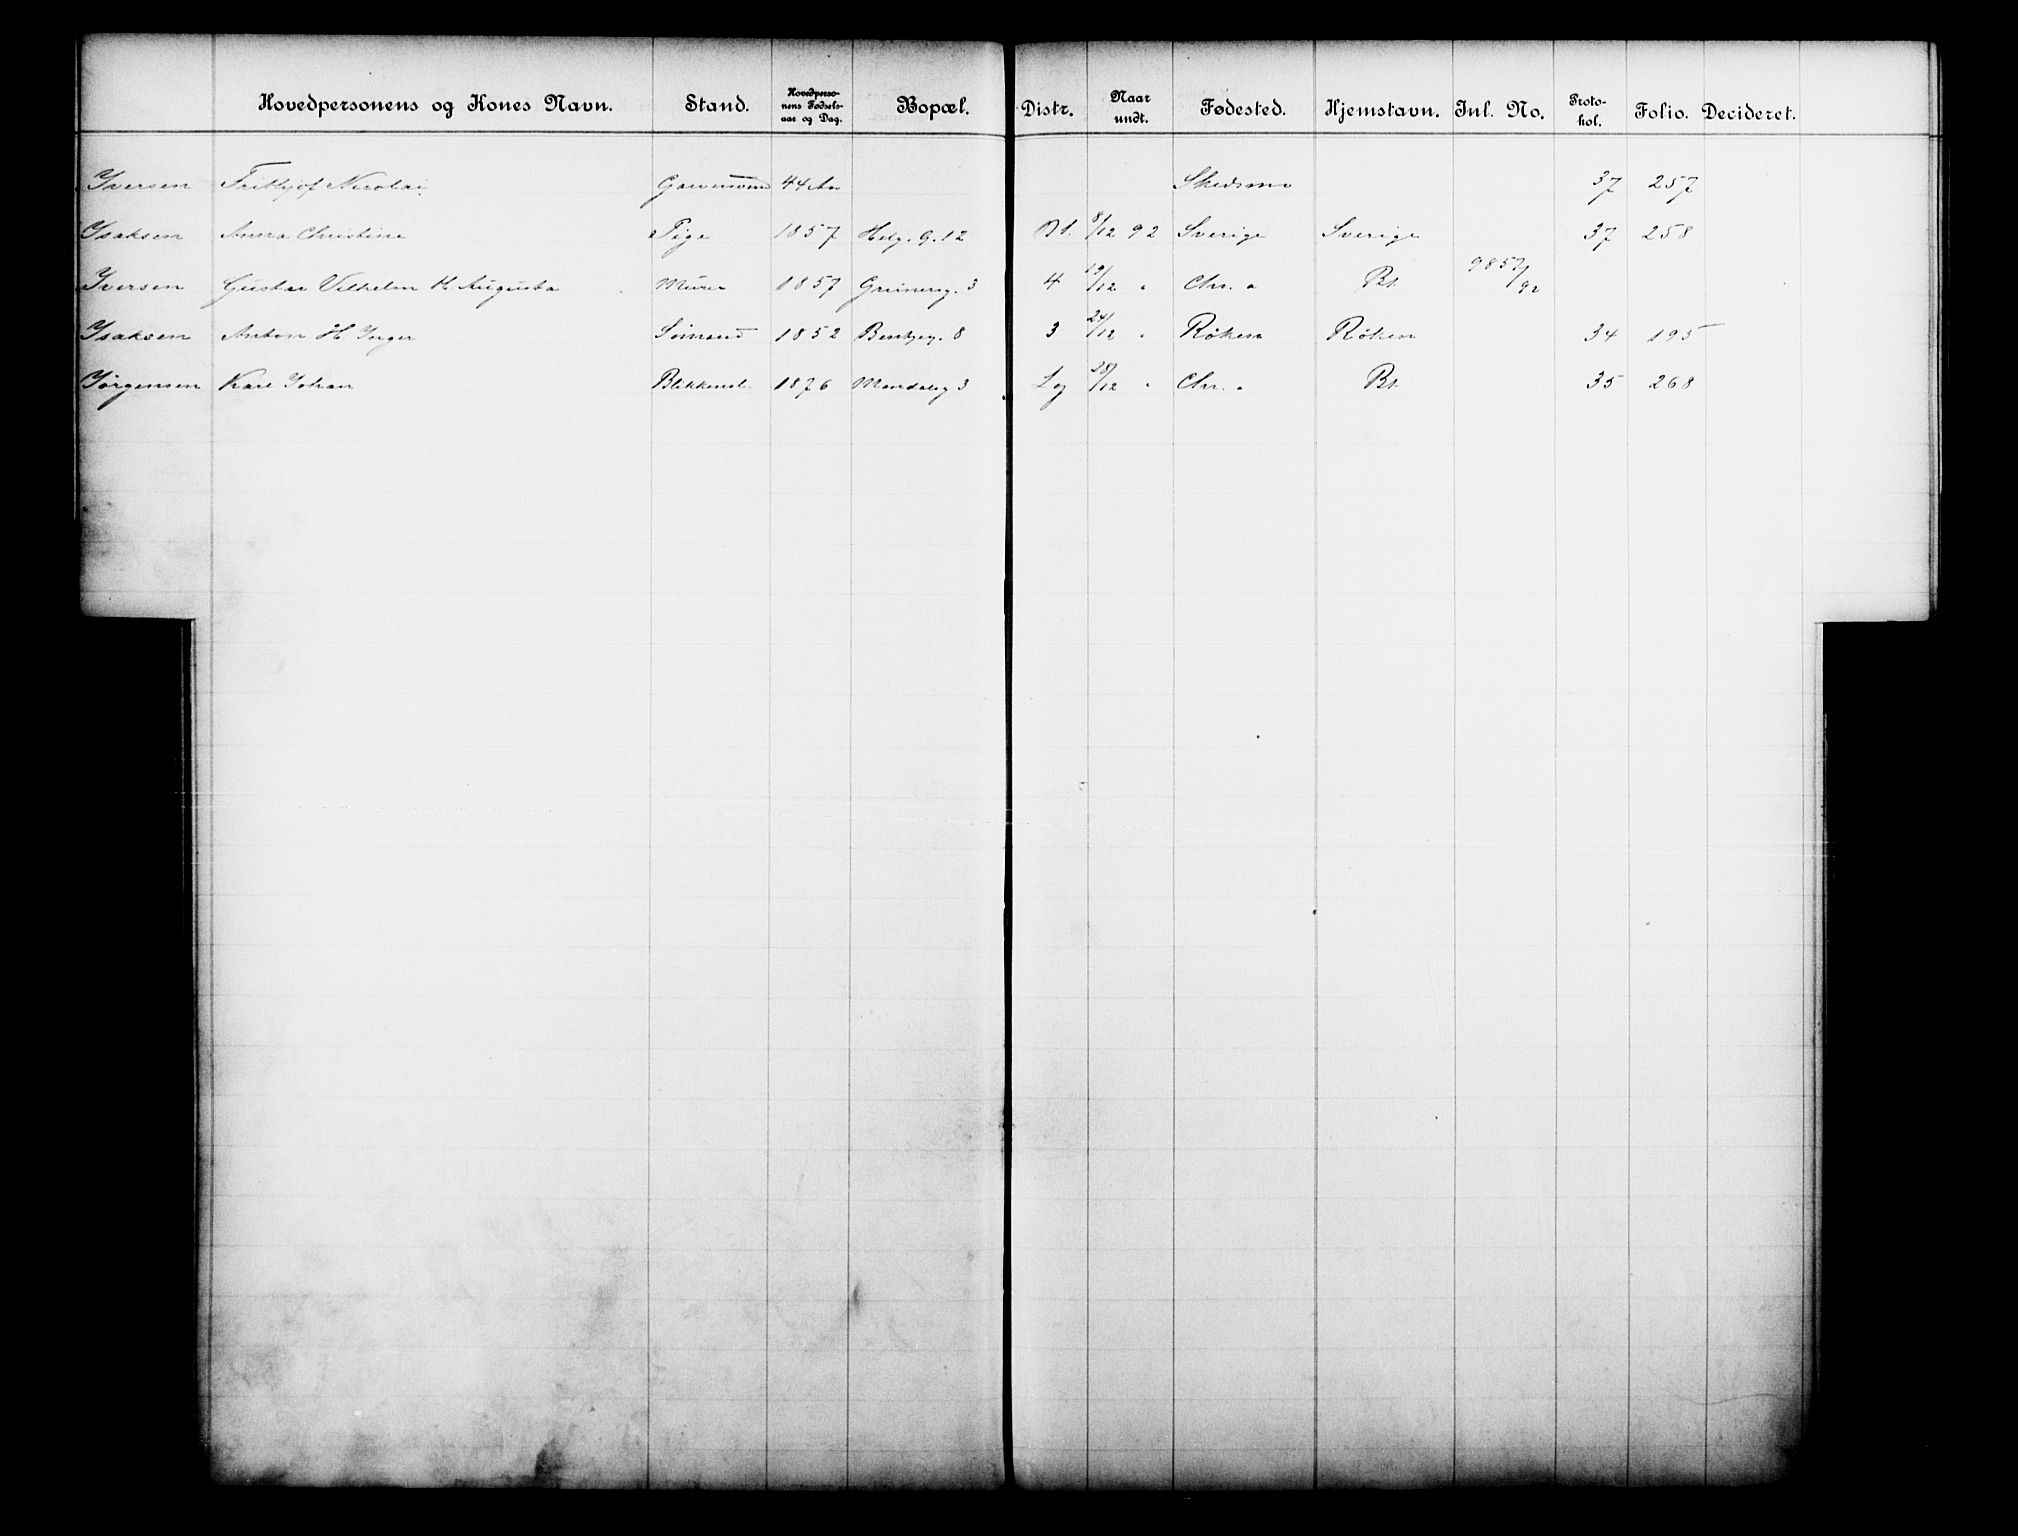 Hovedpersonens og Kones Navn. Stand. Hovedperso-nens Fødsels-aar og Dag. Bopæl. Distr. Naar undt. Fødested. Hjemstavn. Inl. No. Proto-kol. Folio. Decideret.
Iversen Frithjof Nicolai 44 Aar Skedsmo 37 257
Isaksen Anna Christine Pige 1857 Helg. G. 12 Bt. 8/12 92 Sverige Sverige 37 258
Iversen Gustav Vilhelm H. Augusta Murer 1857 Grünerg. 3 4 19/12 " Chr. a Bt. 9857/92
Isaksen Anton H Inger Sömand 1852 3 24/12 " Røken Røken 34 195
Jørgensen Karl Johan Blikkensl. 1876 Mandalsg 3 Lg 28/12 " Chr. a Bt. 35 268